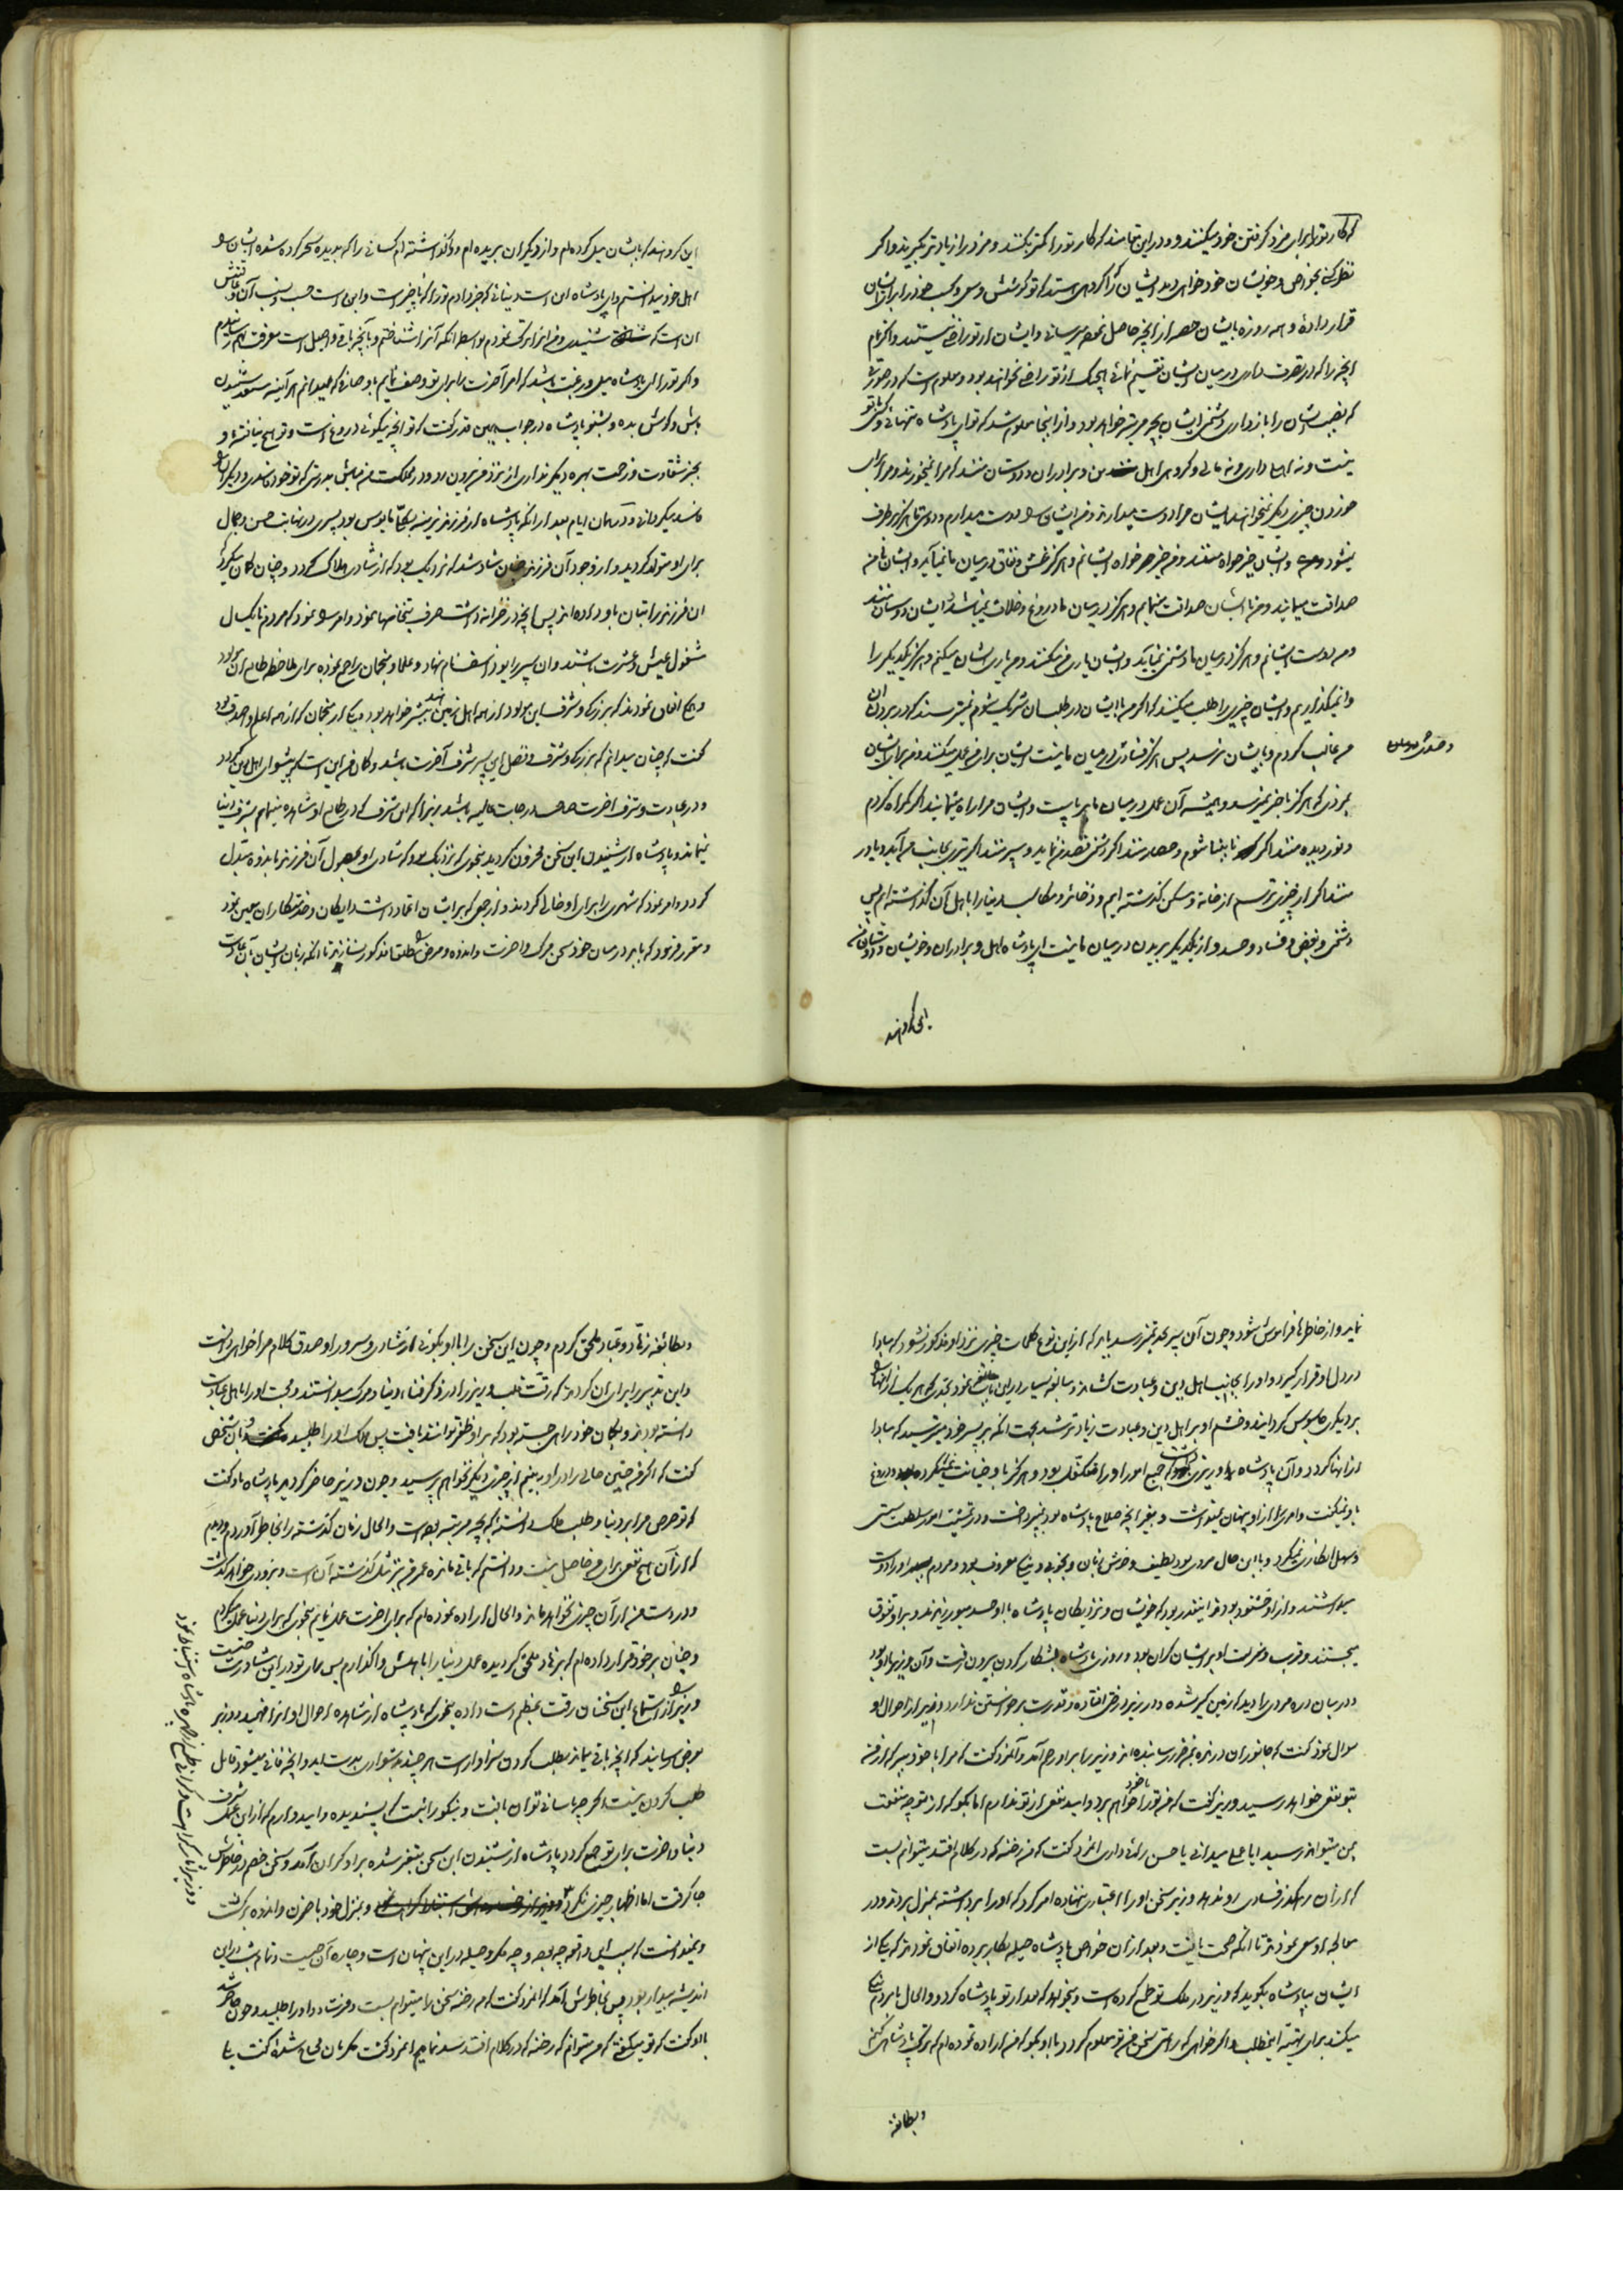 که کار تو را برابر مزد گرفتن خود میکنند و در این تمامند که کار تو را کمتر بکنند و مزد را زیادتر بگیرند و اگر
نظر کنی بخواص و خویشان خود خواهی دید ایشان را گروهی هستند که تو کوشش و سعی و کسب خود را برای ایشان
قرار داده و همه روزه بایشان حصه از آنچه حاصل نموده میرسانی و ایشان از تو راضی نیستند و اگر تمام
آنچه را که در تصرف داری در میان ایشان تقسیم نمائی هیچیک از تو راضی نخواهند بود و معلوم است که در صورتی
که نصیب ایشان را باز داری دشمنی ایشان بچه مرتبه خواهد بود و از اینجا معلوم شد که تو ای پادشاه تنهائی و کسی با تو
نیست و نه اهل داری و نه مالی و گروهی اهل من و برادران و دوستان منند که مرا نمیخورند و مرا برای
خوردن چیزی دیگر نمیخواهند ایشان مرا دوست میدارند و من ایشان را دوست میدارم و دوستی ما هرگز برطرف
نمیشود و ایشان خیر خواه منند و من خیر خواه ایشانم و هرگز غش و نفاق در میان ما نمیآید و ایشان با من
صداقت مینمایند و من با ایشان صداقت مینمایم و هرگز در میان ما دروغ و خلاف نمیباشد ایشان دوستان منند
و من دوست ایشانم و هرگز در میان ما دشمنی نمیآید و ایشان یاری من میکنند و من یاری ایشان میکنم و هرگز یکدیگر را
وا نمیگذاریم و ایشان چیزی را طلب میکنند که اگر من با ایشان در طلب آن شریک شوم نمیترسند که در بردن آن
من غالب گردم و بایشان نرسد پس هرگز فساد در میان ما نیست ایشان برای من عمل میکنند و من برای ایشان
و حسد در میان
بمزدی که هرگز باخر نمیرسد و همیشه آن عمل در میان ما برپاست و ایشان مرا راه مینمایند اگر گمراه گردم
و نور دیده منند اگر نابینا شوم و حصار منند اگر دشمنی قصد من نماید و سپر منند اگر تیری بجانب من آید و یاور
منند اگر از چیزی ترسم از خانه و مسکن گذشته ایم و ذخائر و مکاسب دنیا را باهل آن گذاشته ایم پس
دشمنی و بغض و فساد و حسد و از یکدیگر بریدن در میان ما نیست ای پادشاه اهل و برادران و خویشان و دوستان من
این گروهند
این گروهند که بایشان میل کرده ام و از دیگران بریده ام و واگذاشته ام کسانی را که بدیده سحر کرده شده ایشان را
اهل خود میدانستم و ای پادشاه این است دنیائی که خبر دادم تو را که ناچیز است و این است حسب و نسب آن و عاقبتش
آن است که شنیدی و من آنرا ترک نمودم بواسطه آنکه آنرا شناختم و بآنچه باقی و اصل است معرفت بهم رسانیدم
و اگر تو را ای پادشاه میل و رغبت باشد که امر آخرت را برای تو وصف نمایم باوصافی که میدانم هر آینه مستعد شنیدن
باش و گوش بده و بشنو پادشاه در جواب همین قدر گفت که تو آنچه میگوئی دروغ است و تو هیچ نیافته و
بجز شقاوت و زحمت بهره دیگر نداری از نزد من بیرون رو و در مملکت من مباش بدرستی که تو خود فاسدی و دیگران را
فاسد میگردانی و در همان ایام بعد از آنکه پادشاه از فرزند نرینه بکلی مایوس بود پسری در نهایت حسن و جمال
برای او متولد گردید و از وجود آن فرزند چنان شاد شد که نزدیک بود که از شادی هلاک گردد و چنان گمان میکرد که
آن فرزند را بتان باو داده اند پس آنچه در خزانه داشت صرف بتخانها نمود و امر نمود که مردم تا یکسال
مشغول عیش و عشرت باشند و آن پسر را یوذاسف نام نهاد و علما و منجمان را جمع نموده برای ملاحظه طالع آن مولود
و همه اتفاق نمودند که بزرگی و شرف این مولود از همه اهل زمین هند بیشتر خواهد بود یکی از منجمان که از همه اعلم و اصدق بود
گفت که چنان میدانم که بزرگی و شرف و فضل این پسر شرف آخرت باشد و گمان من این است که پیشوای اهل دین گردد
و در عبادت و شرف آخرت صاحب درجات عالیه باشد زیرا که این شرف که در طالع او مشاهده مینمایم بشرف دنیا
نمیماند و پادشاه از شنیدن این سخن محزون گردید بنحوی که نزدیک بود که شادی او بحصول آن فرزند باندوه مبدل
گردد و امر نمود که شهری را برای او خالی کردند و از جمعی که بر ایشان اعتماد داشت دایگان و خدمتکاران معین نمود
و مقرر فرمود که باید در میان خود سخن مرگ و آخرت و اندوه و مرض مطلقا مذکور نسازند تا آنکه زبان ایشان بآن عادت
نماید و از خاطرها فراموش شود و چون آن پسر بحد تمیز رسد باید که از این نوع کلمات چیزی نزد او مذکور نشود که مبادا
در دل او قرار گیرد و او را بجانب اهل دین و عبادت کشاند و مبالغه بسیار در این باب نمود بحدی که هر یک از آنها را
بر دیگری جاسوس گردانید و خشم او بر اهل دین و عبادت زیادتر شد بجهت آنکه بر پسر خود میترسید که مبادا
از آنها گردد و آن پادشاه را وزیری بود که جمیع امور او را متکفل بود و هرگز با وی خیانت نمیکرد و دروغ
باو نمیگفت و امری را از او پنهان نمیداشت و بغیر آنچه صلاح پادشاه بود نمیپرداخت و در تمشیت امور سلطنت سستی
و سهل انگاری نمیکرد و با این حال مردی بود لطیف و خوش زبان و بخوبی و نیکی معروف بود و مردم او را دوست
میداشتند و از او خشنود بودند اینقدر بود که خویشان و نزدیکان پادشاه با او حسد میورزیدند و بر او تفوق
میجستند و قرب و منزلت او بر ایشان گران بود و روزی پادشاه بشکار کردن بیرون رفت و آن وزیر با او بود
در میان دره مردی را دید که زمین گیر شده و در زیر درختی افتاده و قدرت برخواستن ندارد وزیر از احوال او
سوال نمود گفت که جانوران درنده بمن ضرر رسانیده اند وزیر را بر او رحم آمد و آنمرد گفت که مرا با خود ببر که از من
بتو نفع خواهد رسید وزیر گفت که من تو را با خود خواهم برد و امید نفع از تو ندارم اما بگو که از تو چه منفعت
بمن میتواند رسید ایا عملی میدانی یا حسن رائی داری آنمرد گفت که من رخنه که در کلام افتد میتوانم بست
که از آن رهگذر فسادی رو ندهد وزیر سخن او را اعتباری ننهاده امر کرد که او را برداشته بمنزل بردند و در
معالجه او سعی نمودند تا آنکه صحت یافت و بعد از آن خواص پادشاه حیله بکار برده اتفاق نمودند که یکی از
ایشان بپادشاه بگوید که وزیر در ملک تو طمع کرده است و میخواهد که بعد از تو پادشاه گردد و الحال با مردم نیکی
میکند برای تهیه اینمطلب و اگر خواهی که راستی سخن من بر تو معلوم گردد با او بگو که من اراده نموده ام که ترک پادشاهی کنم
و بطائفه
و بطائفه زهاد و عباد ملحق گردم و چون این سخن را باو بگوئی از شادی و سرور او صدق کلام مرا خواهی دانست
و این تدبیر را برای آن کردند که رقت قلب وزیر را در ذکر فنای دنیا و مرگ میدانستند و محبت او را باهل عبادت
دانسته بودند و بگمان خود راهی جسته بودند که بر او ظفر توانند یافت پس ملک او را طلبیده و آن شخص
گفت که اگر من چنین حالی را در او ببینم از چیزی دیگر نخواهم پرسید و چون وزیر حاضر گردید پادشاه باو گفت
که تو حرص مرا بر دنیا و طلب ملک دانسته که بچه مرتبه بوده است و الحال زمان گذشته را بخاطر آوردم و دیدم
که از آن هیچ نفعی برای من حاصل نیست و دانستم که باقی مانده عمر من نیز مثل گذشته آن است و بزودی خواهد گذشت
و در دست من از آن چیزی نخواهد ماند و الحال اراده نموده ام که برای آخرت عمل نمایم بنحوی که برای دنیا عمل میکردم
و چنان بر خود قرار داده ام که بزهاد ملحق گردیده عمل دنیا را باهلش واگذارم پس رای تو در این مشاورت چیست
وزیر را از استماع این سخنان رقت عظیم دست داده بنحوی که پادشاه از مشاهده احوال او آنرا فهمید و وزیر
بعرض رسانید که آنچه باقی میماند بطلب کردن سزاوار است هر چند بدشواری بدست اید و آنچه فانی میشود قابل
طلب کردن نیست اگر چه باسانی توان یافت و نیکو رائیست که پسندیده و امیدوارم که از این عمل شرف
دنیا و آخرت برای تو جمع گردد پادشاه از شنیدن این سخن متغیر شده بر او گران آمد و سخن خصم در خاطرش
جا گرفت اما اظهار چیزی نکرد و بمنزل خود با حزن و اندوه برگشت
و نمیدانست که سبب این واقعه چه بوده و چه مکر و حیله در این پنهان است و چاره آن چیست و تمام شب در این
اندیشه بیدار بود پس بخاطرش آمد که آنمرد گفت که من رخنه سخن را میتوانم بست و فرستاد و او را طلبید و چون حاضر شد
باو گفت که تو میگفتی که من میتوانم که رخنه که در کلام افتد سد نمایم آنمرد گفت مگر بآن محتاج شده گفت بلی